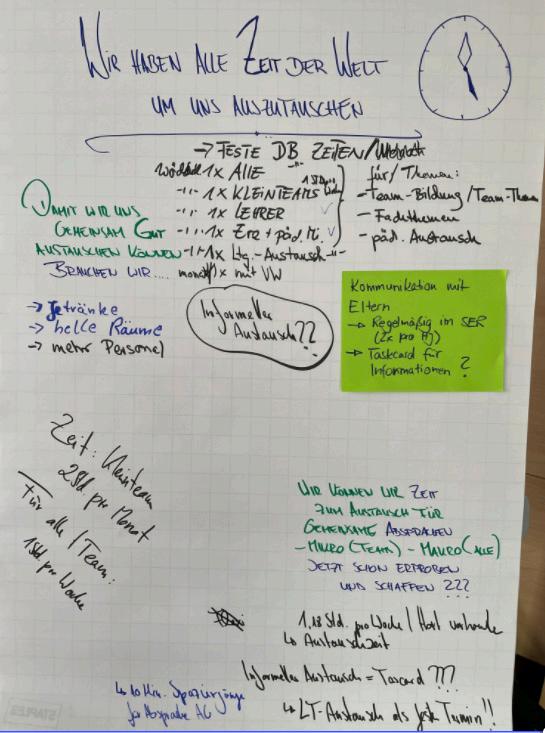 WIR HABEN ALLE ZEIT DER WELT
UM UNS AUSZUTAUSCHEN
→ FESTE DB ZEITEN/
1x ALLE
-"- 1x KLEINTEAMS
-"- 1x LEHRER
-"- 1x Erz + päd. Mi.
-"- 1x Ltg.-Austausch -"-
1x mit VW
für/Themen:
- Team-Bildung/Team-
- Fachthemen
- päd. Austausch
DAMIT WIR UNS
GEMEINSAM GUT
AUSTAUSCHEN KÖNNEN
BRAUCHEN WIR....
→ Getränke
→ helle Räume
→ mehr Personal
Informeller
Austausch??
Kommunikation mit
Eltern
→ Regelmäßig im SER
(2x pro Hj)
→ Taskcard für
Informationen ?
Zeit: Kleinteam
2Std pro Monat
Für alle / Team:
1Std pro Woche
WIE KÖNNEN WIR ZEIT
ZUM AUSTAUSCH FÜR
GEMEINSAME ABSPRACHEN
- MIKRO (TEAM) - MAKRO (ALLE)
JETZT SCHON ERPROBEN
UND SCHAFFEN ???
Std. pro Woche / Hort
↳ Austauschzeit
Informeller Austausch = Tascard ???
↳ LT-Austausch als feste Termin!!
↳ 10 Min. Spaziergänge
für Absprache AG
STAPLES